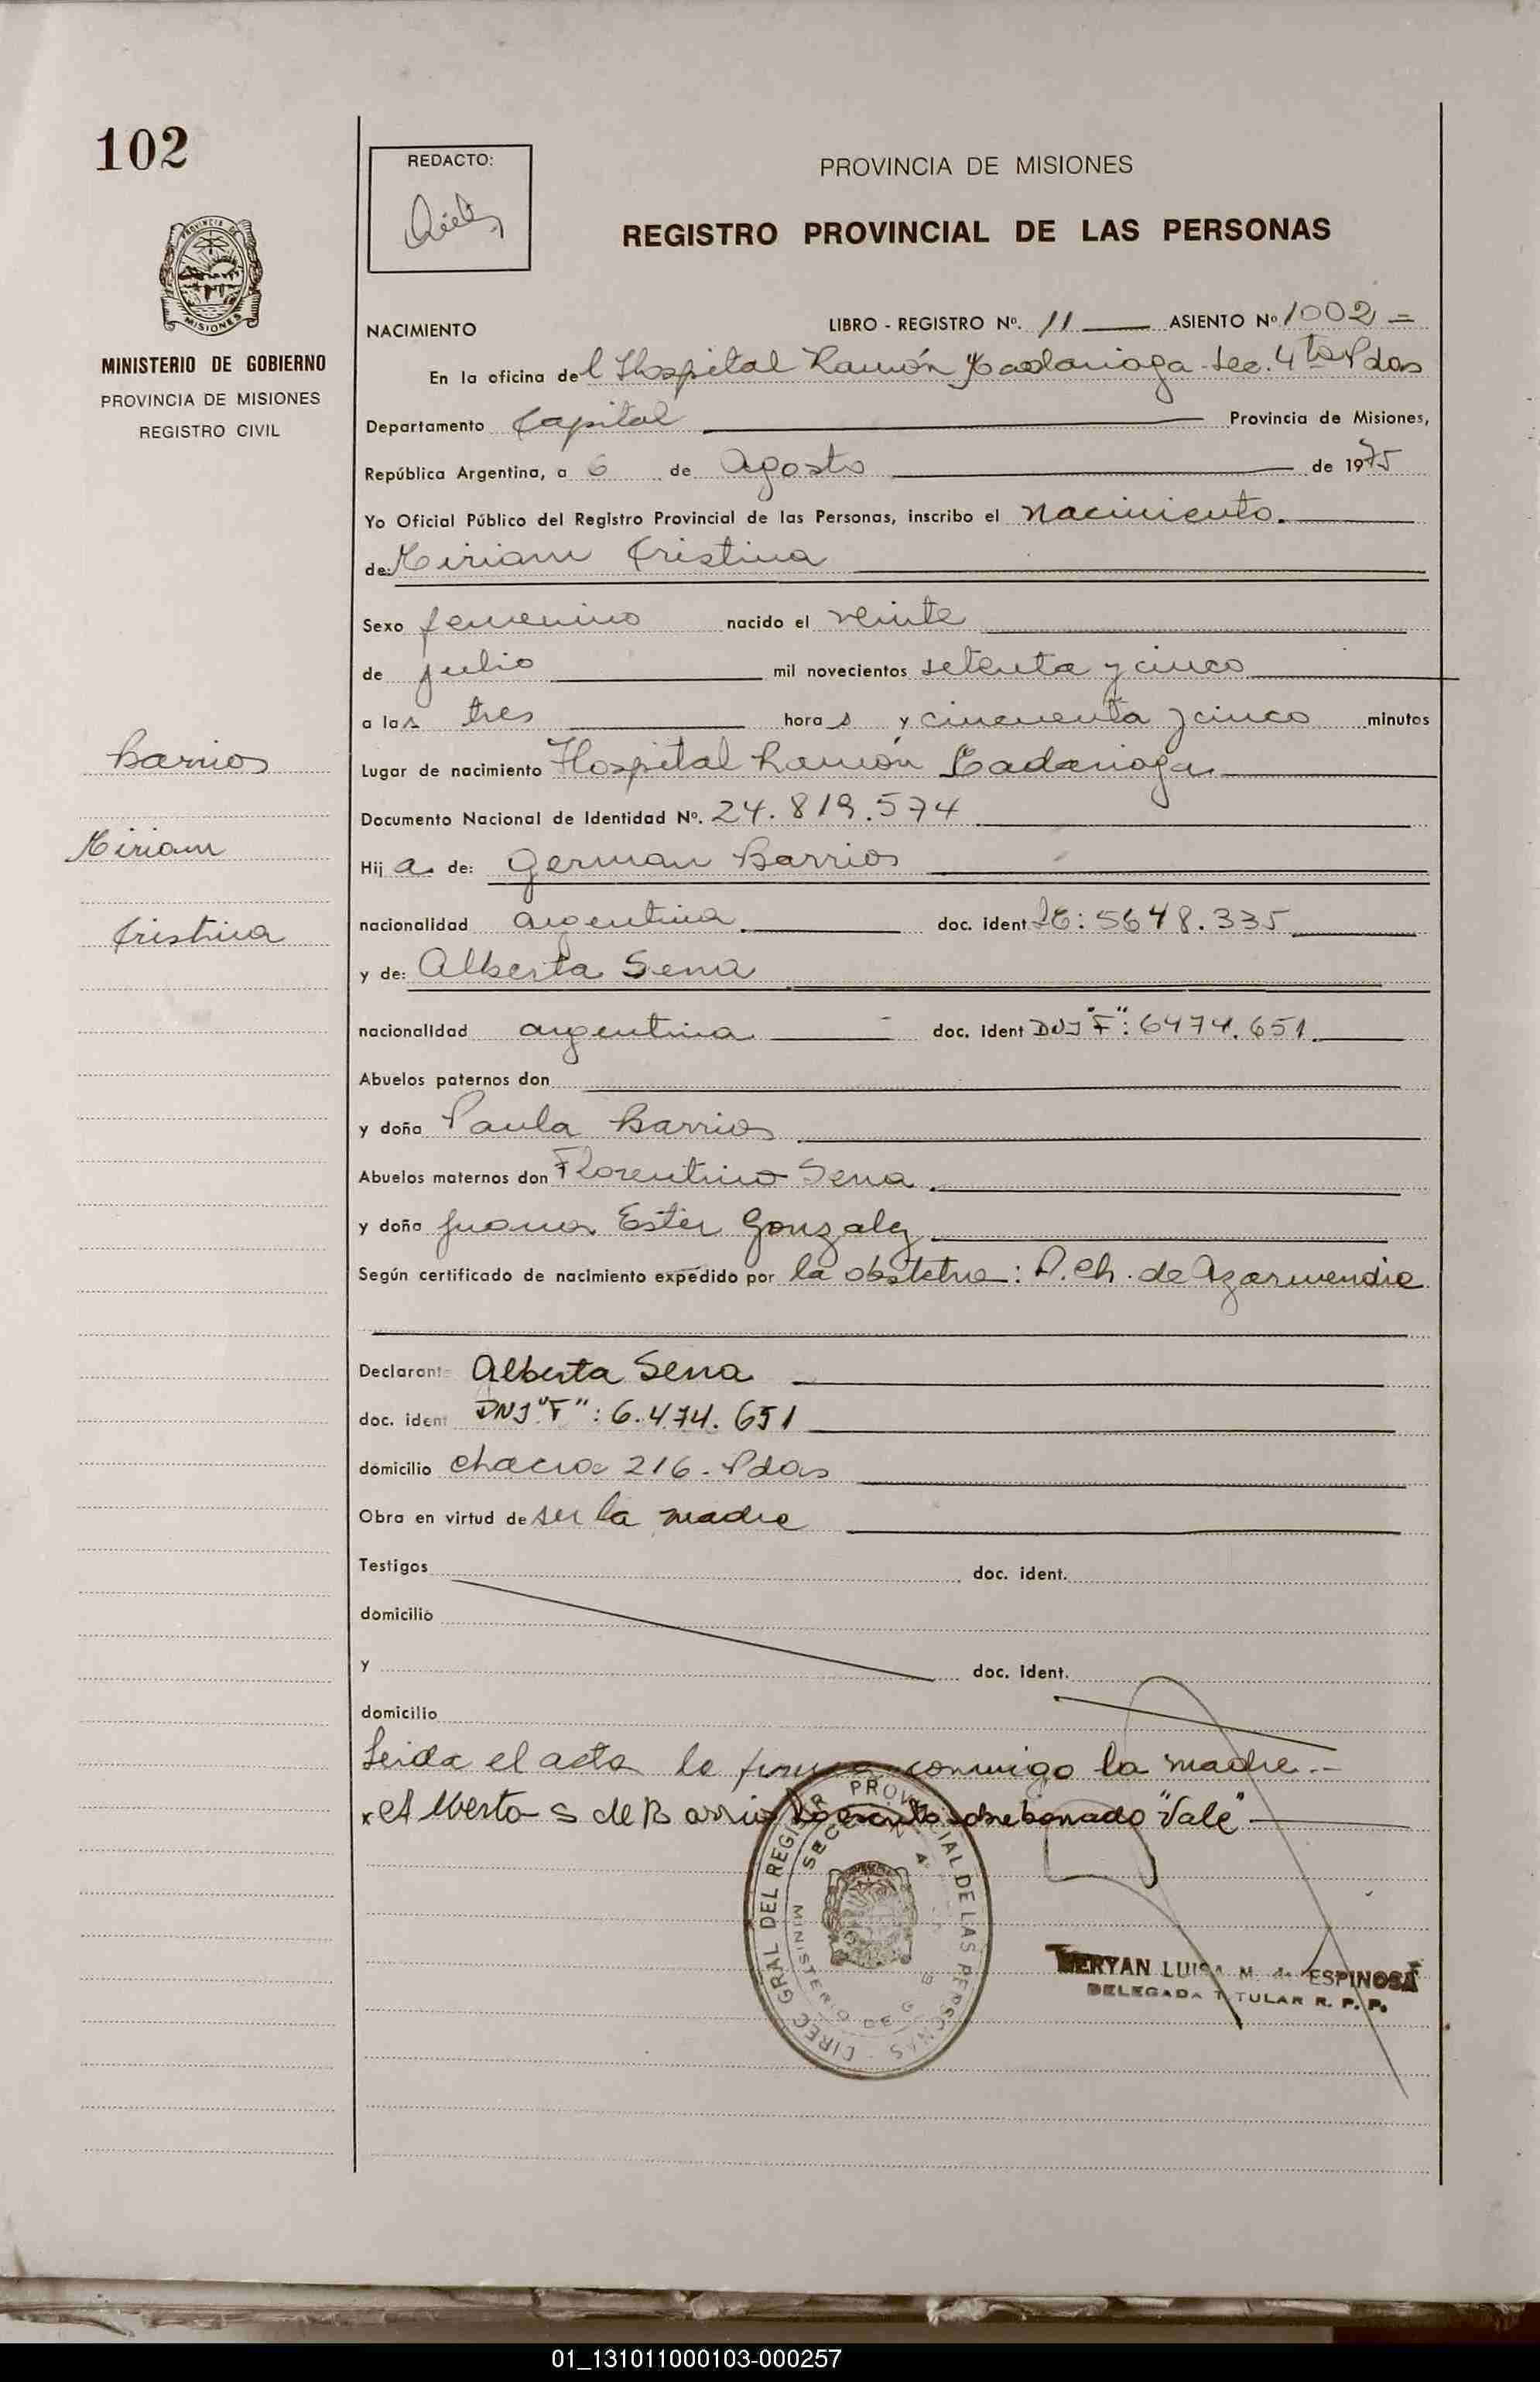 102
REDACTO:
PROVINCIA DE MISIONES
REGISTRO PROVINCIAL DE LAS PERSONAS
MISIONES
MINISTERIO DE GOBIERNO
PROVINCIA DE MISIONES
REGISTRO CIVIL
NACIMIENTO LIBRO - REGISTRO Nº. 11 ASIENTO Nº 1002 =
En la oficina del Hospital Ramón Madariaga - Sec. 4ta Pdas
Departamento Capital Provincia de Misiones,
República Argentina, a 6 de Agosto de 1975
Yo Oficial Público del Registro Provincial de las Personas, inscribo el nacimiento.
de: Miriam Cristina
Sexo femenino nacido el veinte
de julio mil novecientos setenta y cinco
a las tres horas y cincuenta y cinco minutos
Barrios
Lugar de nacimiento Hospital Ramón Madariaga
Documento Nacional de Identidad Nº. 24.819.574
Miriam
Hija de: German Barrios
Cristina
nacionalidad argentina doc. ident LE: 5648.335
y de: Alberta Sena
nacionalidad argentina doc. ident DNI "F": 6474.651
Abuelos paternos don
y doña Paula Barrios
Abuelos maternos don Florentino Sena
y doña Juana Ester Gonzalez
Según certificado de nacimiento expedido por la obstetra: P. Ch. de Azarmendia
Declarante Alberta Sena
doc. ident DNI "F": 6.474.651
domicilio chacra 216. Pdas
Obra en virtud de ser la madre
Testigos doc. ident.
domicilio
y doc. ident.
domicilio
Leida el acta la firma conmigo la madre.-
x Alberta S de Barrios Lo escrito sobreborrado "Vale"
DIREC GRAL DEL REGISTR PROVINCIAL DE LAS PERSONAS
SECCION 4ª
MINISTERIO DE GOB
MERYAN LUISA M. de ESPINOSA
DELEGADA TITULAR R. P. P.
01_131011000103-000257